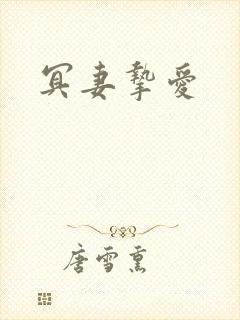 冥妻摯愛
唐雪熏